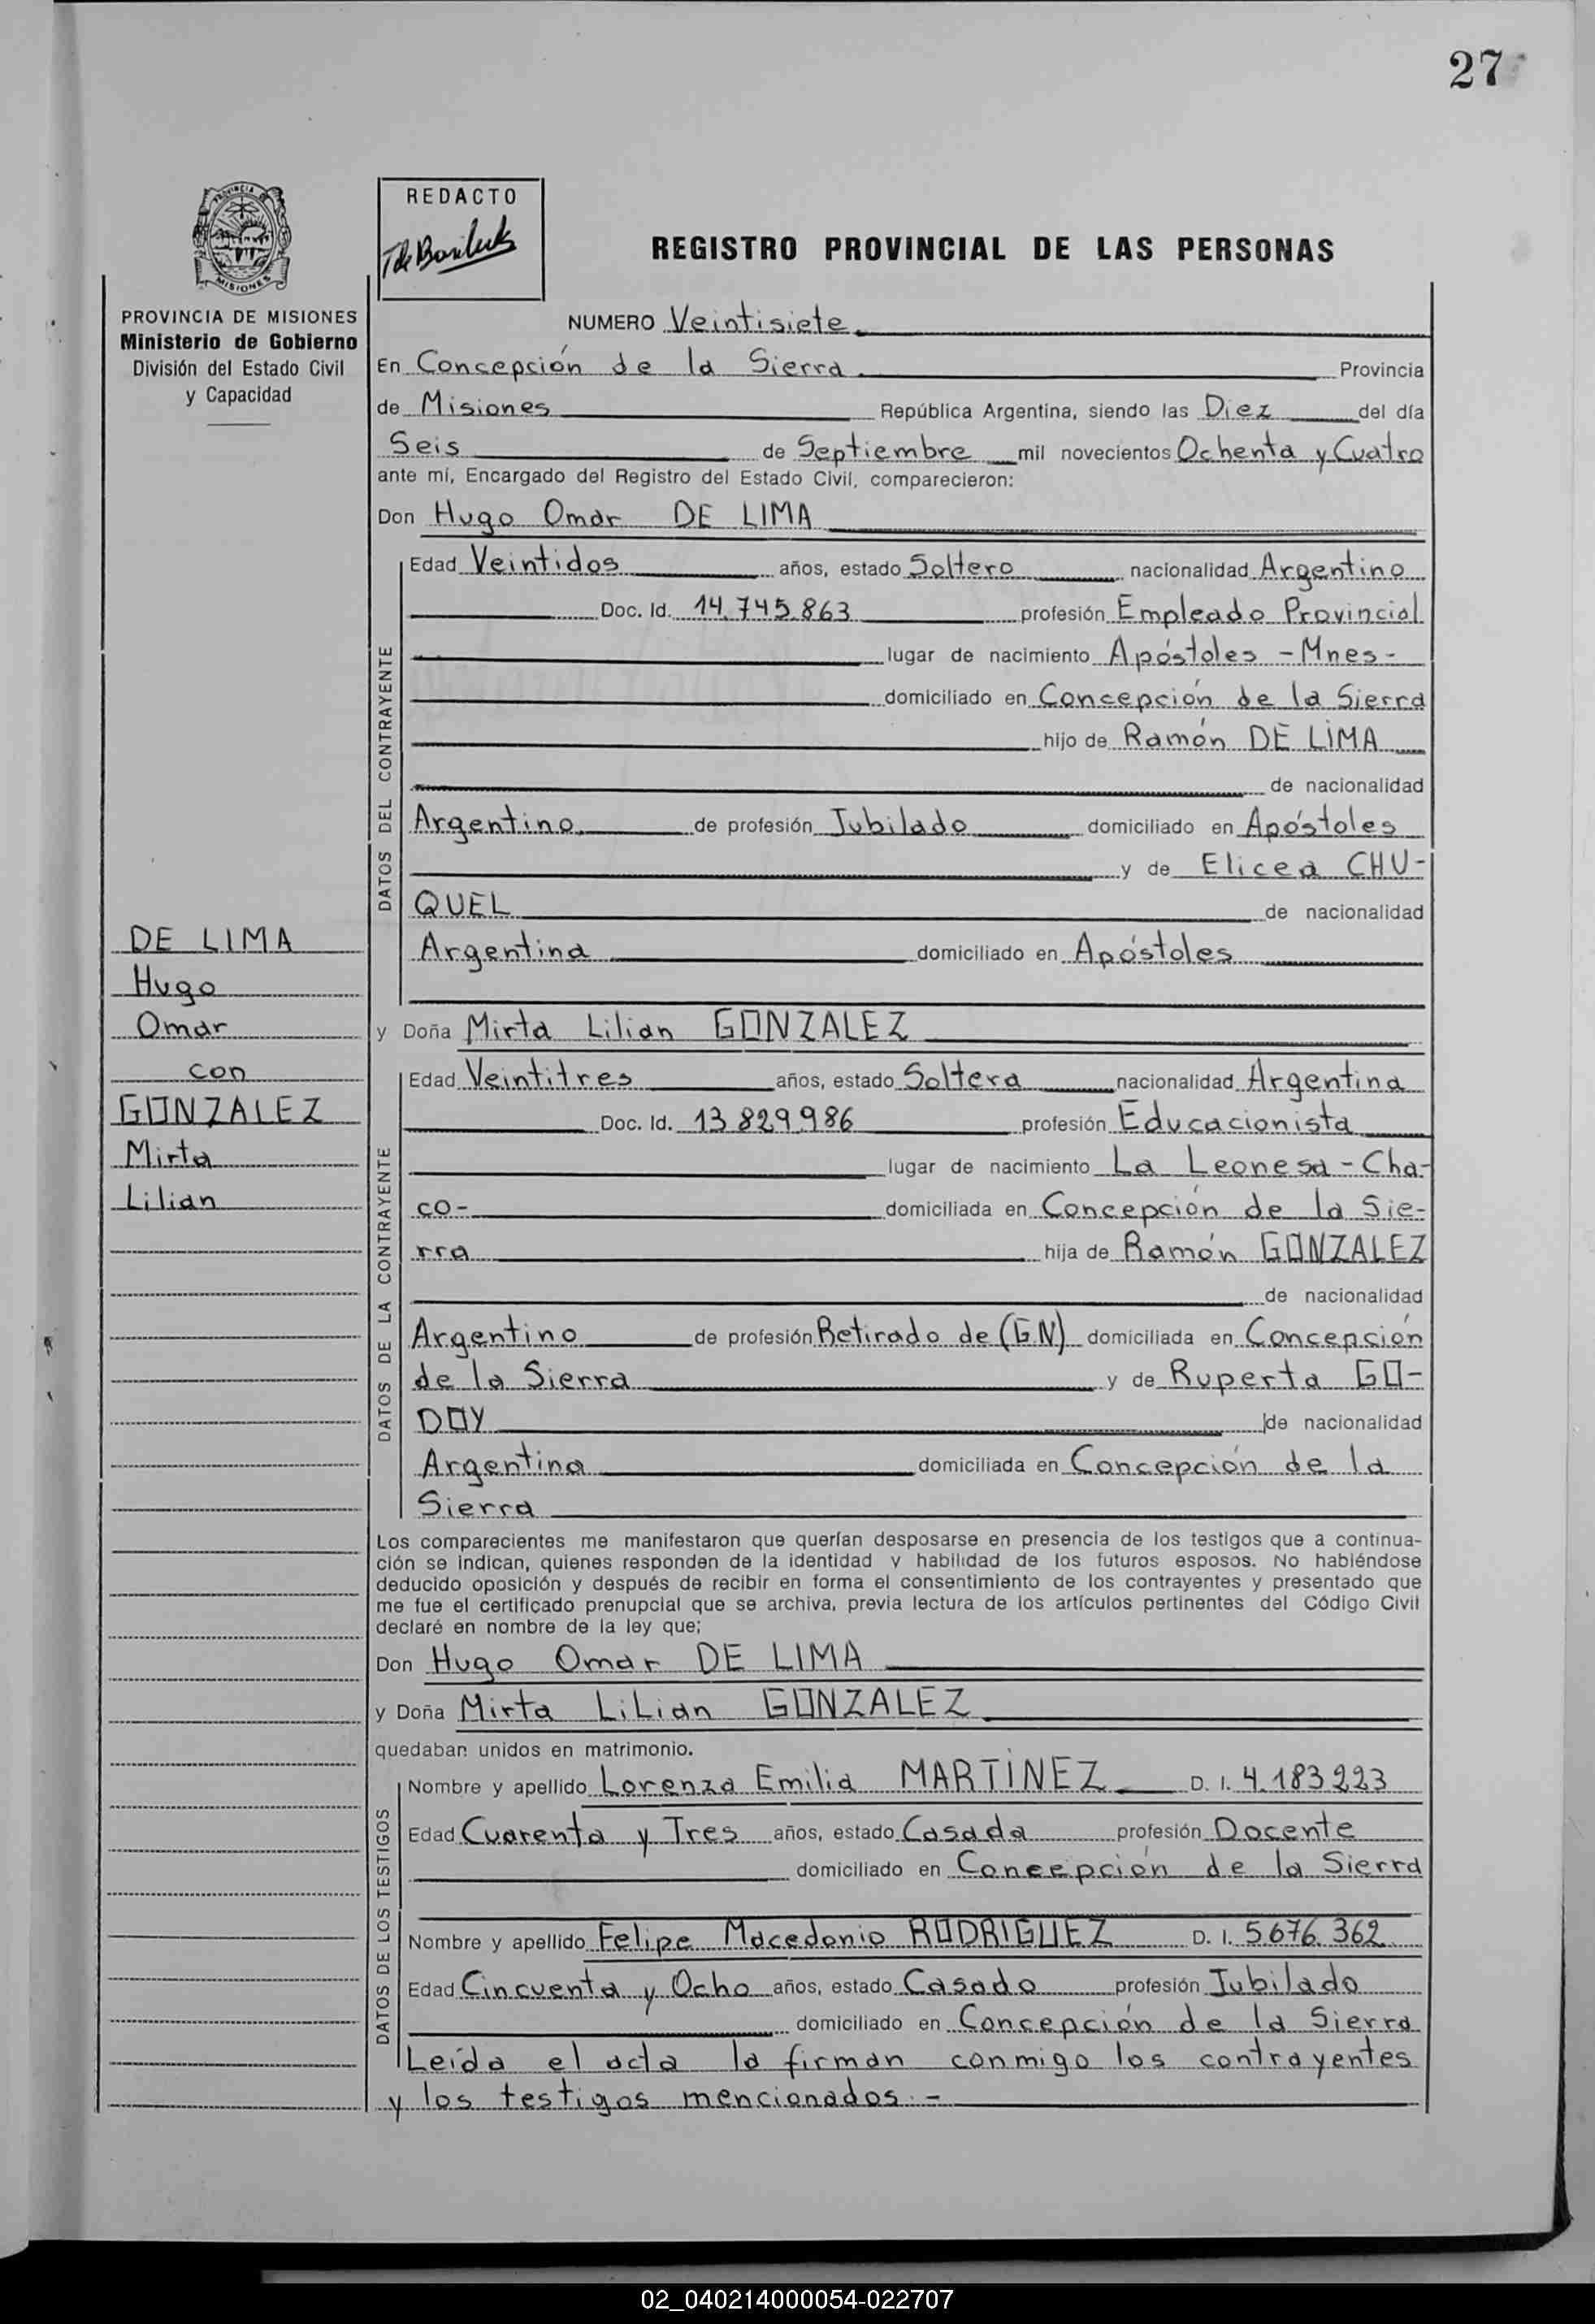 27
REDACTO
REGISTRO PROVINCIAL DE LAS PERSONAS
PROVINCIA DE MISIONES
Ministerio de Gobierno
División del Estado Civil
y Capacidad
NUMERO Veintisiete
En Concepción de la Sierra Provincia
de Misiones República Argentina, siendo las Diez del día
Seis de Septiembre mil novecientos Ochenta y Cuatro
ante mí, Encargado del Registro del Estado Civil, comparecieron:
Don Hugo Omar DE LIMA
DATOS DEL CONTRAYENTE
Edad Veintidos años, estado Soltero nacionalidad Argentino
Doc. Id. 14.745.863 profesión Empleado Provincial
lugar de nacimiento Apóstoles - Mnes -
domiciliado en Concepción de la Sierra
hijo de Ramón DE LIMA
de nacionalidad
Argentino de profesión Jubilado domiciliado en Apóstoles
y de Elicea CHU-
QUEL de nacionalidad
Argentina domiciliado en Apóstoles
DE LIMA
Hugo
Omar
con
GONZALEZ
Mirta
Lilian
y Doña Mirta Lilian GONZALEZ
DATOS DE LA CONTRAYENTE
Edad Veintitres años, estado Soltera nacionalidad Argentina
Doc. Id. 13.829.986 profesión Educacionista
lugar de nacimiento La Leonesa - Cha-
co - domiciliada en Concepción de la Sie-
rra hija de Ramón GONZALEZ
de nacionalidad
Argentino de profesión Retirado de (G.N) domiciliada en Concepción
de la Sierra y de Ruperta GO-
DOY de nacionalidad
Argentina domiciliada en Concepción de la
Sierra
Los comparecientes me manifestaron que querían desposarse en presencia de los testigos que a continua-
ción se indican, quienes responden de la identidad y habilidad de los futuros esposos. No habiéndose
deducido oposición y después de recibir en forma el consentimiento de los contrayentes y presentado que
me fue el certificado prenupcial que se archiva, previa lectura de los artículos pertinentes del Código Civil
declaré en nombre de la ley que;
Don Hugo Omar DE LIMA
y Doña Mirta LiLian GONZALEZ
quedaban unidos en matrimonio.
DATOS DE LOS TESTIGOS
Nombre y apellido Lorenza Emilia MARTÍNEZ D. I. 4.183.223
Edad Cuarenta y Tres años, estado Casada profesión Docente
domiciliado en Concepción de la Sierra
Nombre y apellido Felipe Macedonio RODRIGUEZ D. I. 5.676.362
Edad Cincuenta y Ocho años, estado Casado profesión Jubilado
domiciliado en Concepción de la Sierra
Leída el acta la firman conmigo los contrayentes
y los testigos mencionados.-
02_040214000054-022707